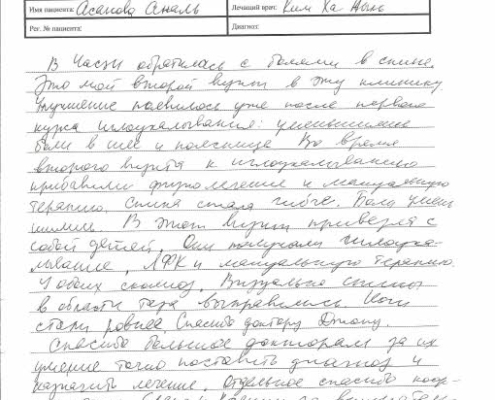 Имя пациента: Асанова Аналь Лечащий врач: Ким Ха Ныль
Рег. № пациента: Диагноз:
В Части обратилась с болями в спине.
Это мой второй визит в эту клинику.
Улучшение появилось уже после первого
курса иглоукалывания: уменьшились
боли в шее и пояснице Во время
второго визита к иглоукалыванию
прибавили физиолечение и мануальную
терапию. Спина стала гибче. Боли умень
шились. В этот визит привезла с
собой детей. Они получали иглоука-
лывание, ЛФК и мануальную терапию.
У обоих сколиоз. Визуально спины
в области таза выправились Ноги
стали ровнее. Спасибо доктору Джону.
Спасибо большое докторам за их
умение точно поставить диагноз и
назначить лечение. Отдельное спасибо коор-